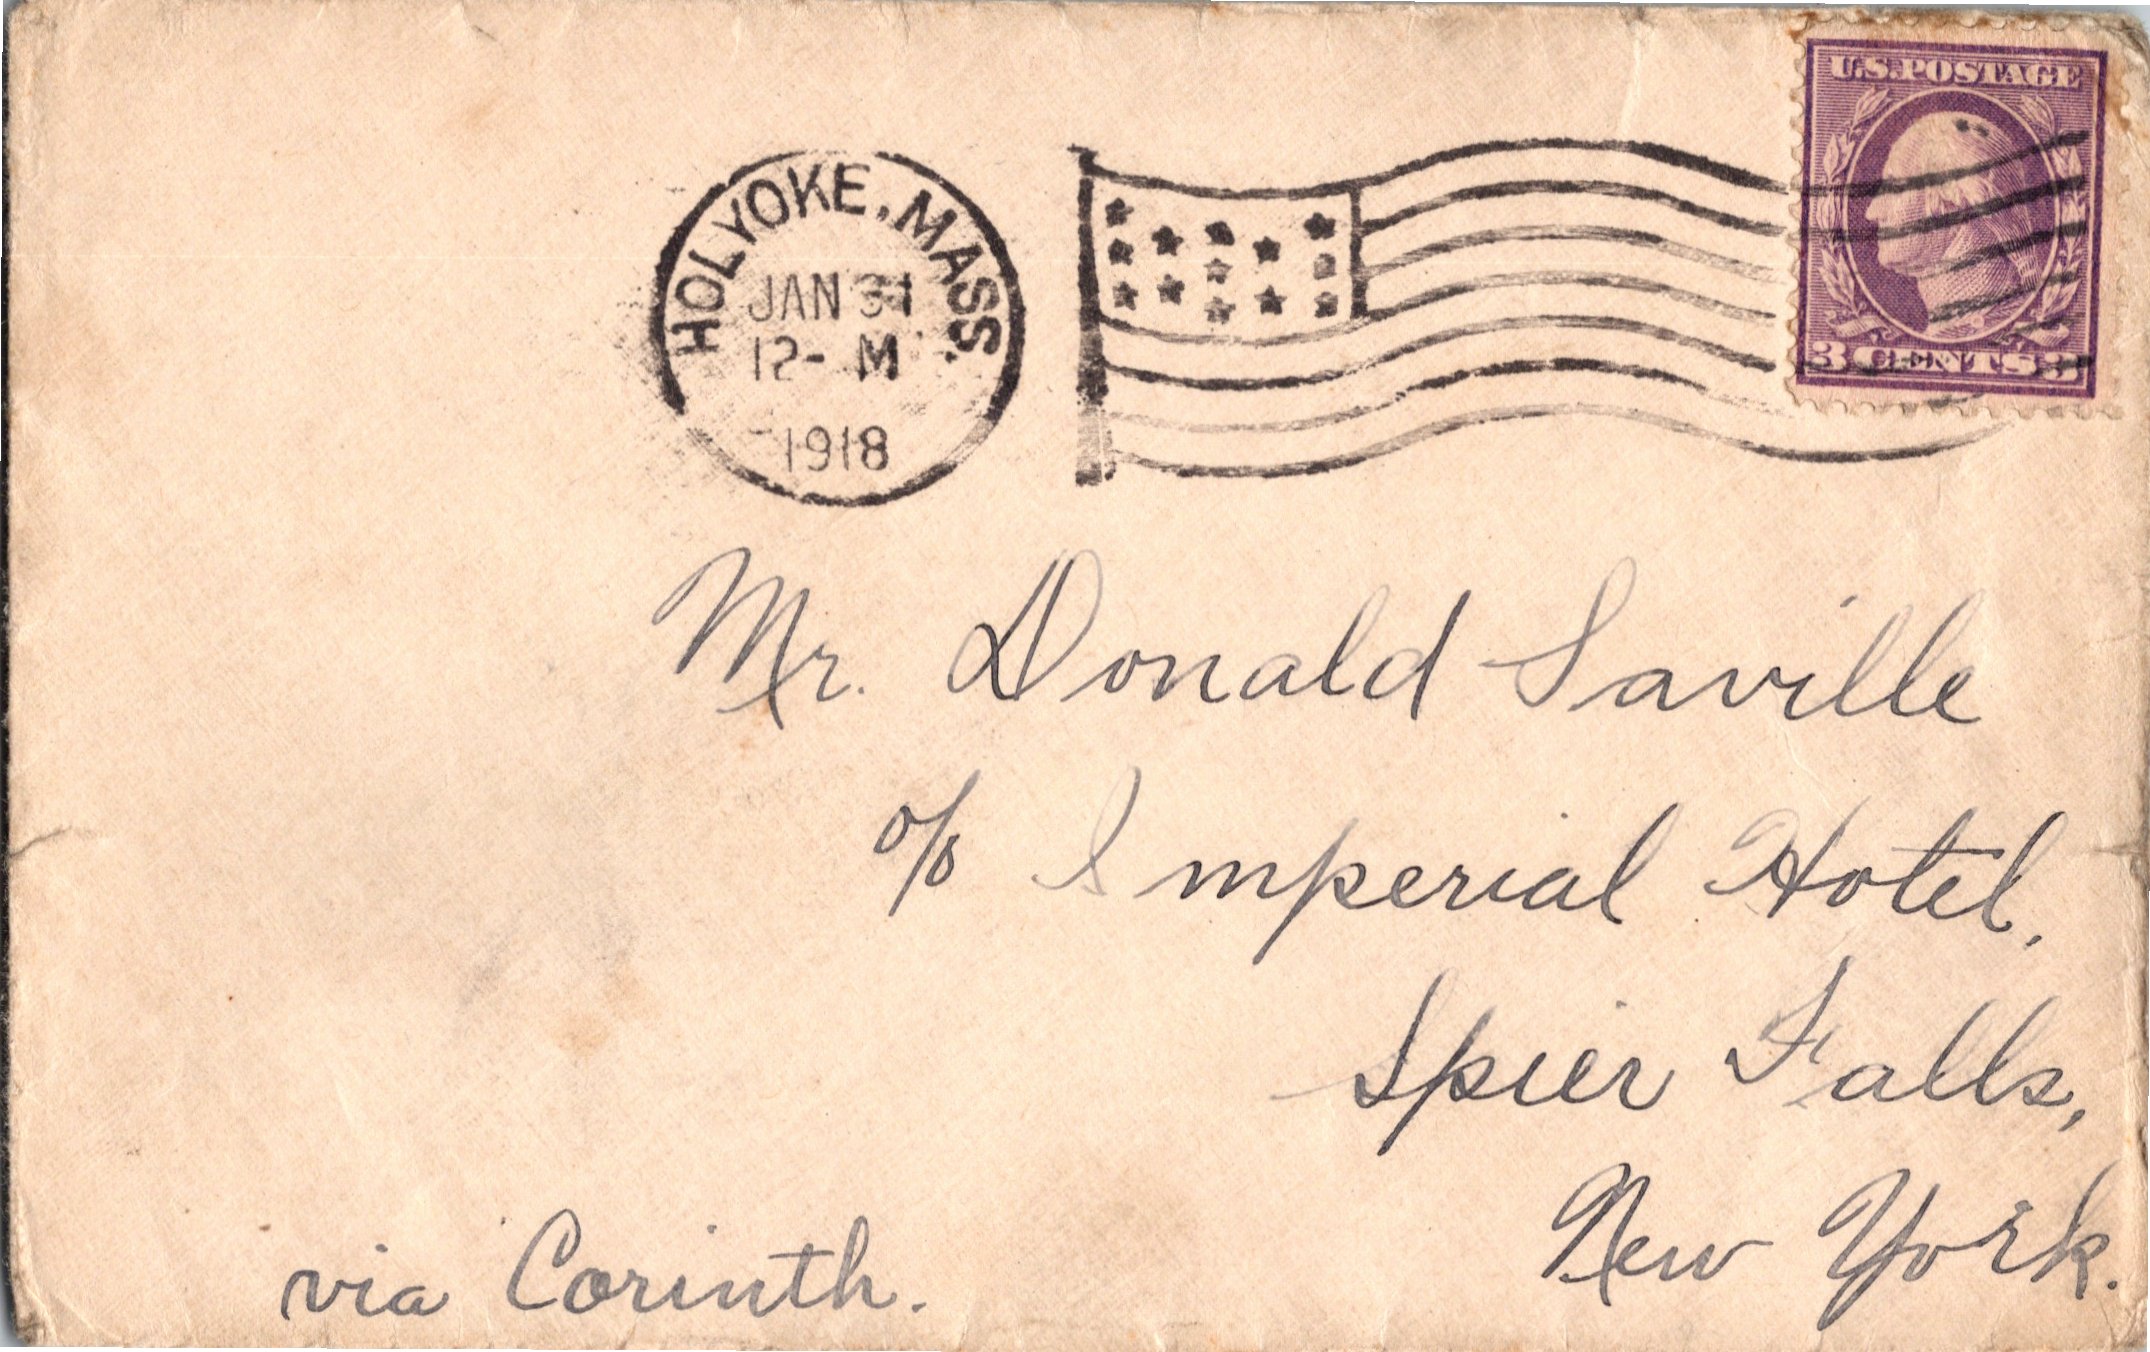 U.S. POSTAGE
3 CENTS 3
HOLYOKE, MASS.
JAN 31
12- M
1918
Mr. Donald Saville
c/o Imperial Hotel,
Spier Falls,
New York.
via Corinth.